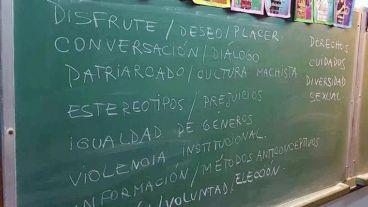 DISFRUTE/DESEO/PLACER.
CONVERSACIÓN/DIÁLOGO
PATRIARCADO/CULTURA MACHISTA
ESTEREOTIPOS/PREJUICIOS
IGUALDAD DE GÉNEROS
VIOLENCIA INSTITUCIONAL.
INFORMACIÓN/MÉTODOS ANTICONCEPTIVOS
/VOLUNTAD. ELECCIÓN
DERECHOS
CUIDADOS
DIVERSIDAD
SEXUAL